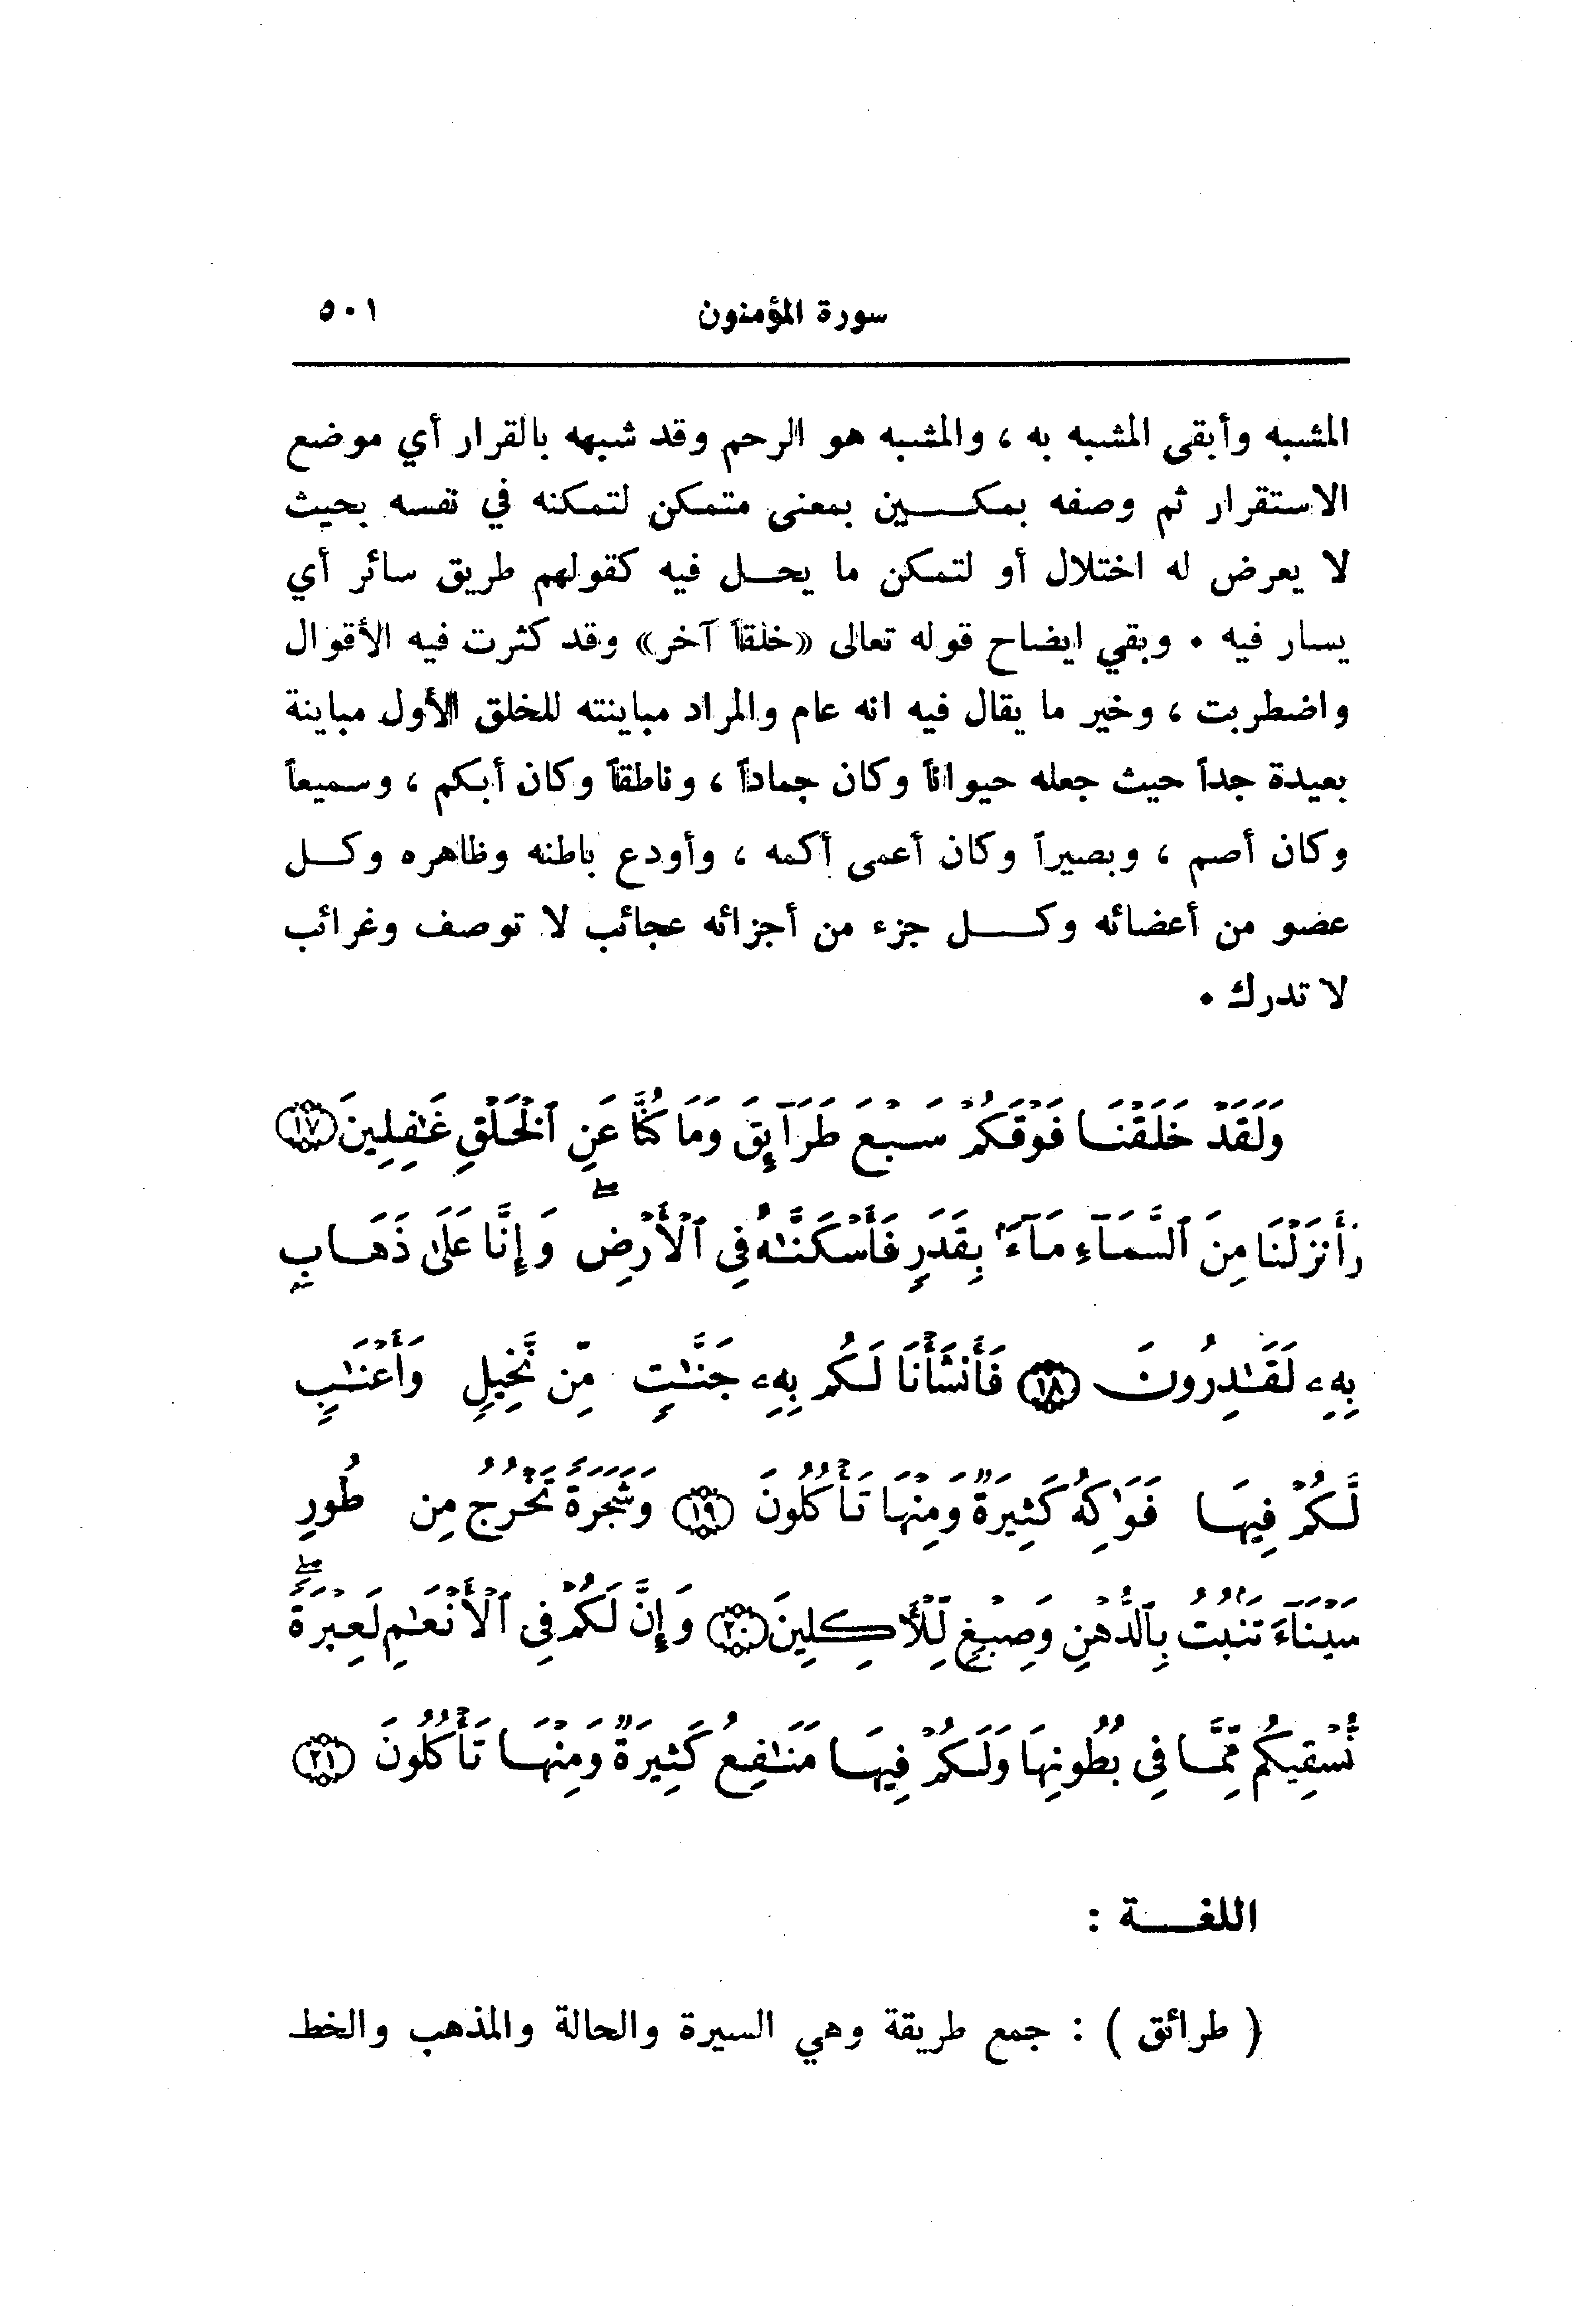 سورة المؤمنون ٥٠١
المشبه وأبقى المشبه به ، والمشبه هو الرحم وقد شبهه بالقرار أي موضع
الاستقرار ثم وصفه بمكين بمعنى متمكن لتمكنه في نفسه بحيث
لا يعرض له اختلال أو لتمكن ما يحل فيه كقولهم طريق سائر أي
يسار فيه . وبقي ايضاح قوله تعالى «خلقاً آخر» وقد كثرت فيه الأقوال
واضطربت ، وخير ما يقال فيه انه عام والمراد مباينته للخلق الأول مباينة
بعيدة جداً حيث جعله حيواناً وكان جماداً ، وناطقاً وكان أبكم ، وسميعاً
وكان أصم ، وبصيراً وكان أعمى أكمه ، وأودع باطنه وظاهره وكل
عضو من أعضائه وكل جزء من أجزائه عجائب لا توصف وغرائب
لا تدرك .
وَلَقَدْ خَلَقْنَا فَوْقَكُمْ سَبْعَ طَرَآئِقَ وَمَا كُنَّا عَنِ ٱلْخَلْقِ غَٰفِلِينَ ﴿١٧﴾
وَأَنزَلْنَا مِنَ ٱلسَّمَآءِ مَآءَۢ بِقَدَرٍ فَأَسْكَنَّٰهُ فِى ٱلْأَرْضِ ۖ وَإِنَّا عَلَىٰ ذَهَابٍۭ
بِهِۦ لَقَٰدِرُونَ ﴿١٨﴾ فَأَنشَأْنَا لَكُم بِهِۦ جَنَّٰتٍ مِّن نَّخِيلٍ وَأَعْنَٰبٍ
لَّكُمْ فِيهَا فَوَٰكِهُ كَثِيرَةٌ وَمِنْهَا تَأْكُلُونَ ﴿١٩﴾ وَشَجَرَةً تَخْرُجُ مِن طُورِ
سَيْنَآءَ تَنۢبُتُ بِٱلدُّهْنِ وَصِبْغٍ لِّلْأٓكِلِينَ ﴿٢٠﴾ وَإِنَّ لَكُمْ فِى ٱلْأَنْعَٰمِ لَعِبْرَةً ۖ
نُّسْقِيكُم مِّمَّا فِى بُطُونِهَا وَلَكُمْ فِيهَا مَنَٰفِعُ كَثِيرَةٌ وَمِنْهَا تَأْكُلُونَ ﴿٢١﴾
اللغة :
( طرائق ) : جمع طريقة وهي السيرة والحالة والمذهب والخط